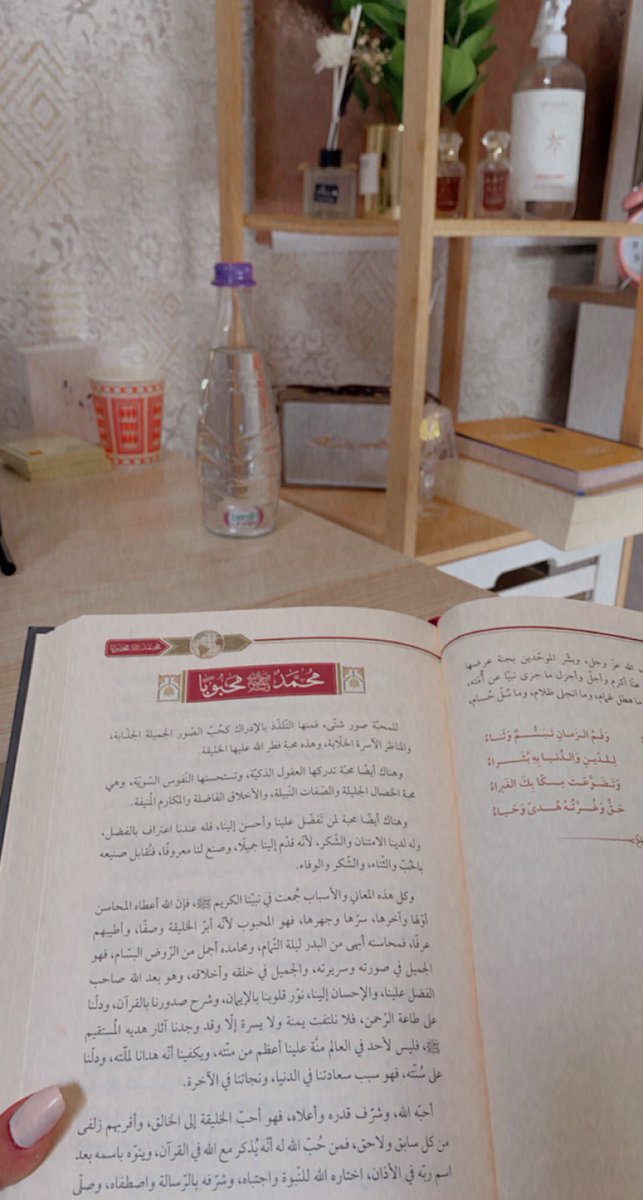 محمد ﷺ محبوبا
مُحَمَّدٌ ﷺ مَحْبُوبًا
للمحبّة صور شتّى، فمنها التّلذّذ بالإدراك كحُبّ الصّور الجميلة الجذّابة،
والمناظر الآسرة الخلّابة، وهذه محبة فطر الله عليها الخليقة.
وهناك أيضًا محبّة تدركها العقول الذكيّة، وتستحسنها النّفوس السّويّة، وهي
محبة الخصال الجليلة والصّفات النّبيلة، والأخلاق الفاضلة والمكارم المُنيفة.
وهناك أيضًا محبة لمن تَفضّل علينا وأحسن إلينا، فله عندنا اعتراف بالفضل،
وله لدينا الامتنان والشّكر، لأنّه قدّم إلينا جميلًا، وصنع لنا معروفًا، فنُقابل صنيعه
بالحُبّ والثّناء، والشّكر والوفاء.
وكل هذه المعاني والأسباب جُمعت في نبيّنا الكريم ﷺ، فإن الله أعطاه المحاسن
أوّلها وآخرها، سرّها وجهرها، فهو المحبوب لأنّه أبرّ الخليقة وصفًا، وأطيبهم
عرفًا، فمحاسنه أبهى من البدر ليلة التّمام، ومحامده أجمل من الرّوض البسّام، فهو
الجميل في صورته وسريرته، والجميل في خلقه وأخلاقه، وهو بعد الله صاحب
الفضل علينا، والإحسان إلينا، نوّر قلوبنا بالإيمان، وشرح صدورنا بالقرآن، ودلّنا
على طاعة الرّحمن، فلا نلتفت يمنة ولا يسرة إلّا وقد وجدنا آثار هديه المُستقيم
ﷺ، فليس لأحد في العالم منَّة علينا أعظم من منّته، ويكفينا أنّه هدانا لملّته، ودلّنا
على سُنّته، فهو سبب سعادتنا في الدنيا، ونجاتنا في الآخرة.
أحبّه الله، وشرّف قدره وأعلاه، فهو أحبّ الخليقة إلى الخالق، وأقربهم زلفى
من كل سابق ولاحق، فمن حُبّ الله له أنّه يُذكر مع الله في القرآن، وينوّه باسمه بعد
اسم ربّه في الأذان، اختاره الله للنّبوة واجتباه، وشرّفه بالرّسالة واصطفاه، وصلّى
الله عزّ وجل، ويبشّر الموحّدين بجنة عرضها
عنّا أكرم وأجلّ وأجزل ما جزى نبيًا عن أمّته،
ما هطل غمام، وما انجلى ظلام، وما سُلّ حُسام،
وَفَمُ الزمانِ تَبَسُّمٌ وَثَنَاءُ
لِلدّينِ وَالدُّنيا بِهِ بُشَراءُ
وَتَضَوَّعَت مِسكًا بِكَ الغَبراءُ
حَقٌّ وَغُرَّتُهُ هُدىً وَحَياءُ